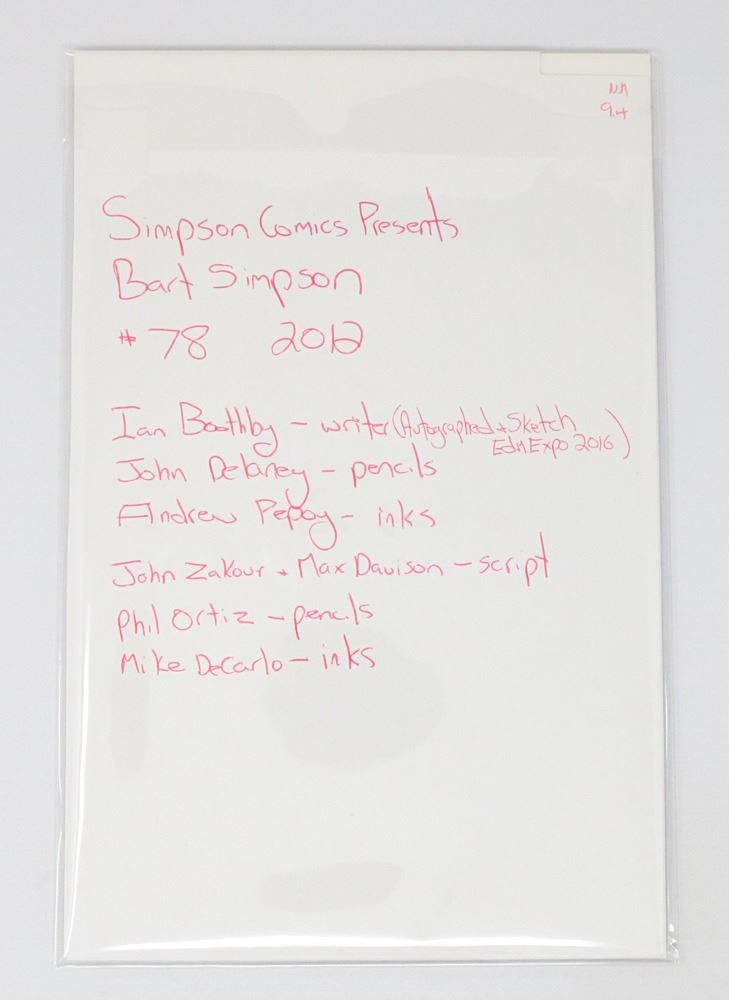 NM
9.4
Simpson Comics Presents
Bart Simpson
#78 2012
Ian Boothby - writer (Autographed + Sketch
EdmExpo 2016)
John Delaney - pencils
Andrew Pepoy - inks
John Zakour + Max Davison - script
Phil Ortiz - pencils
Mike DeCarlo - inks